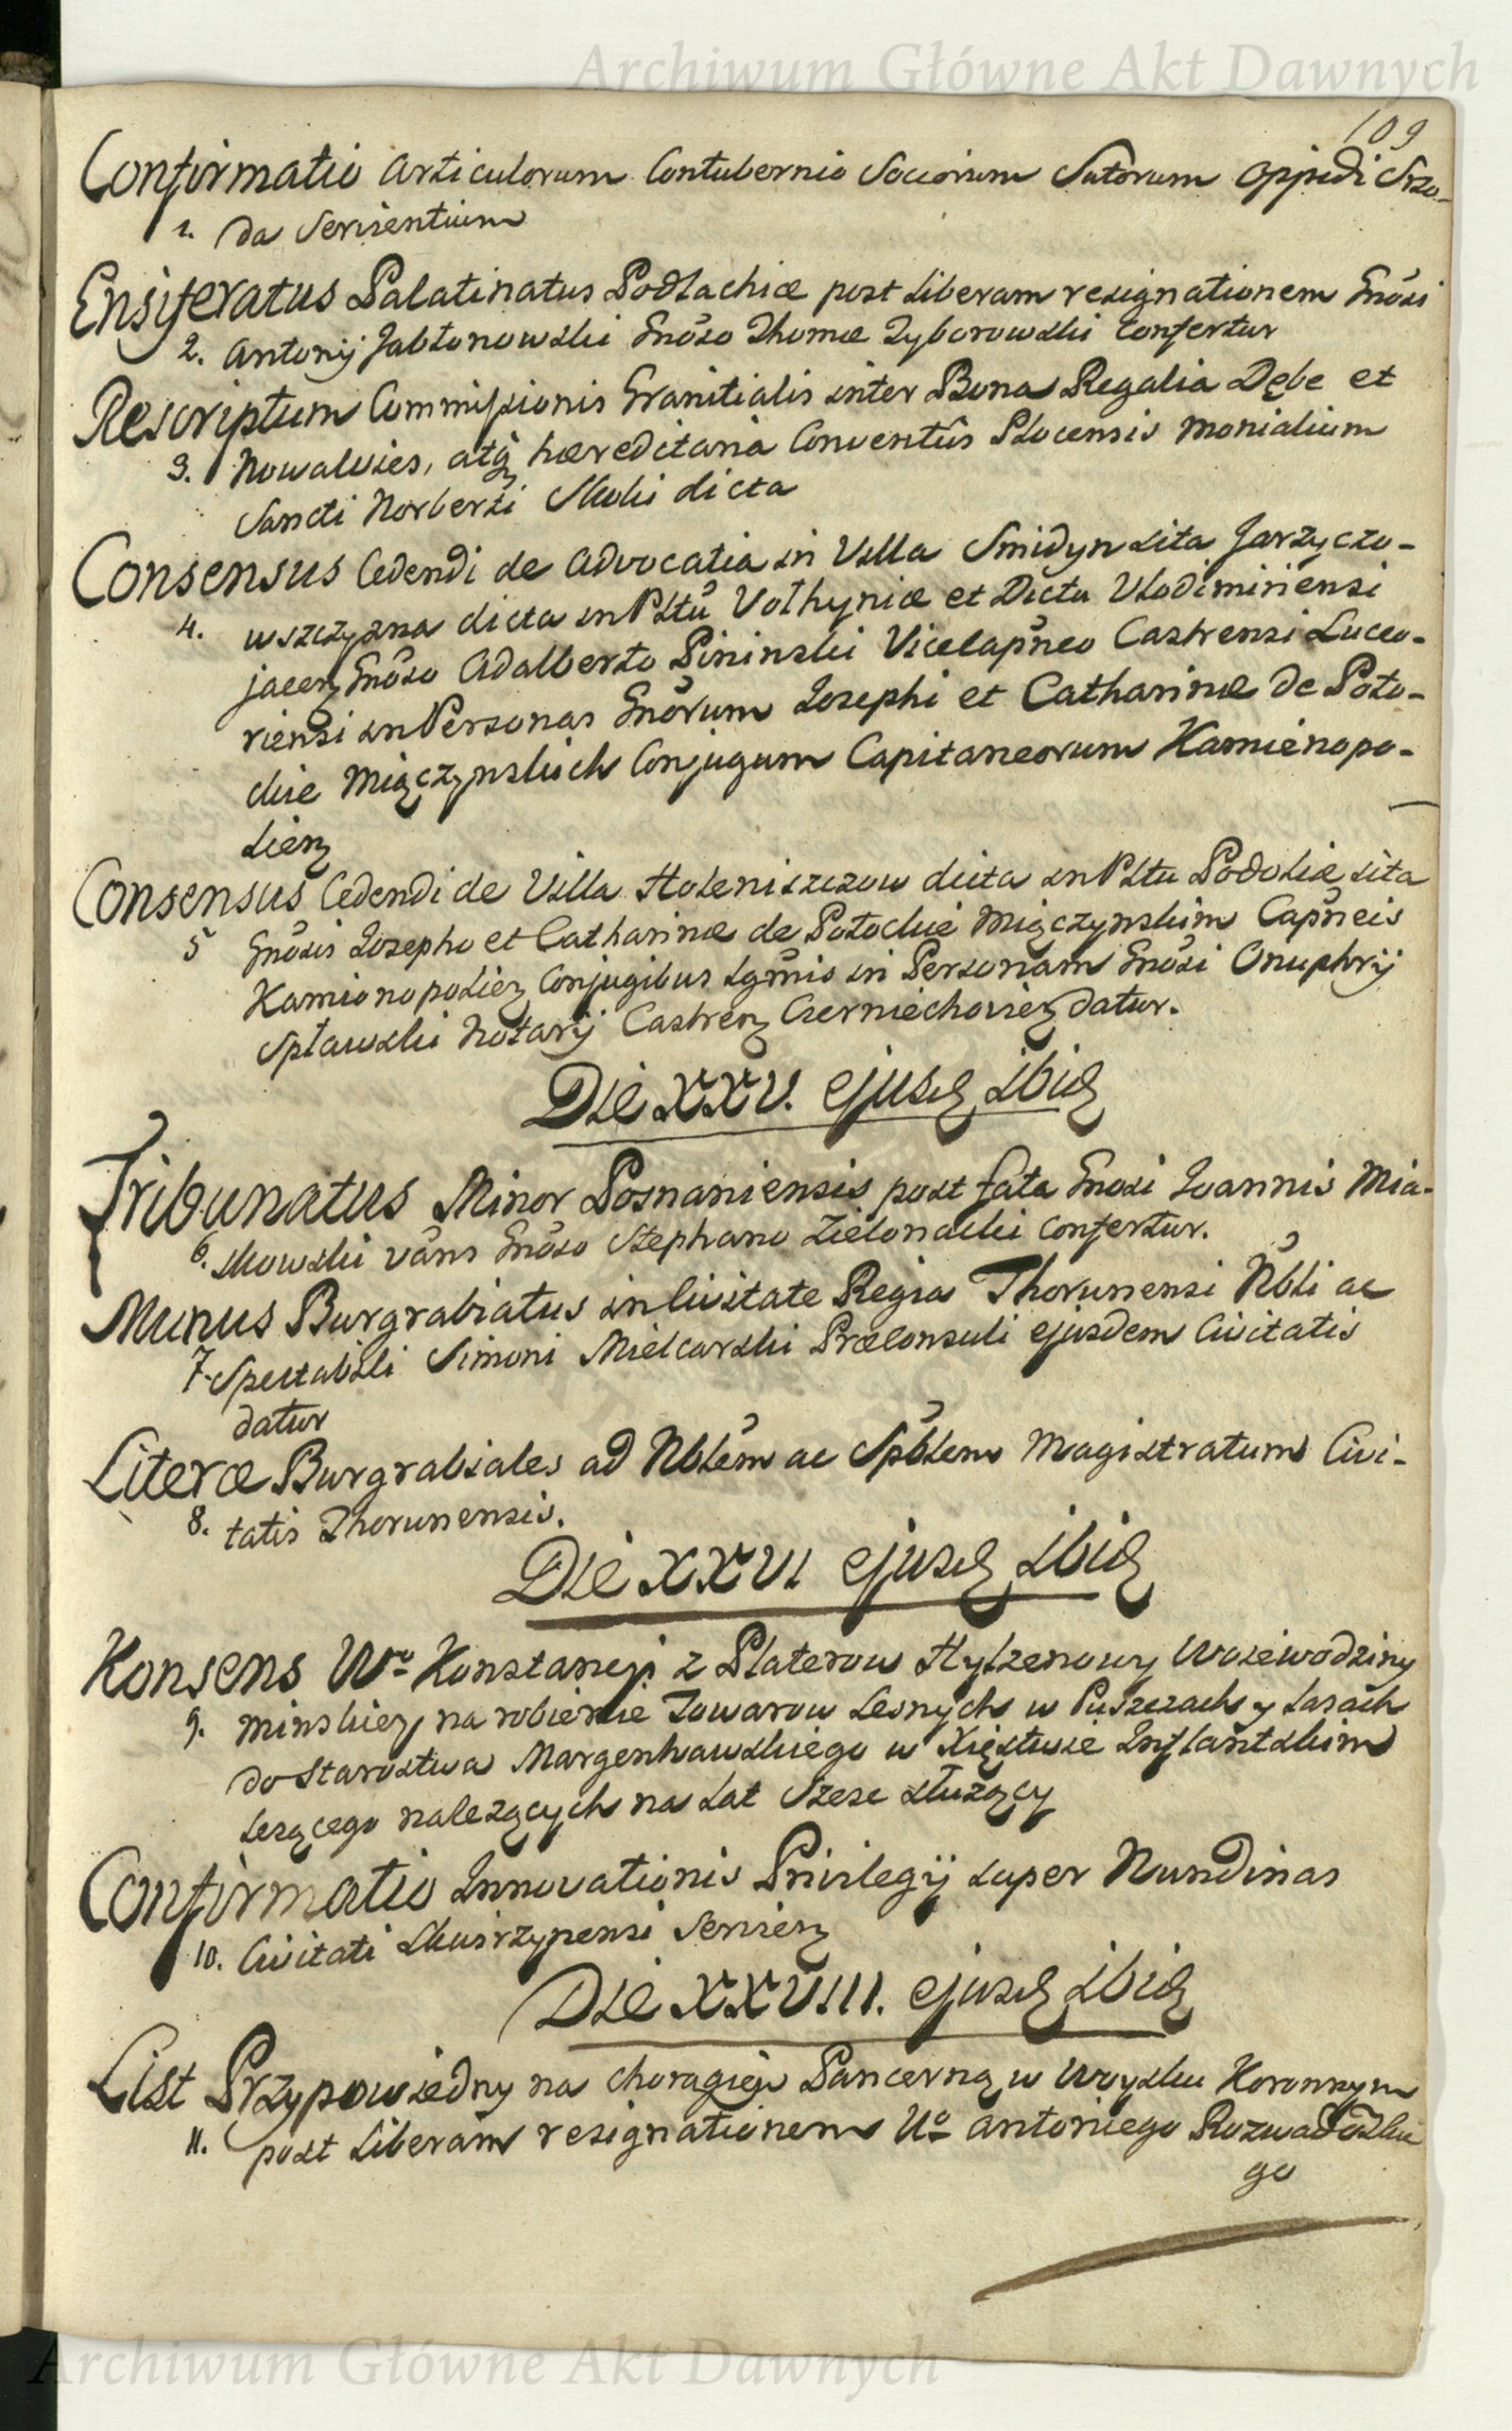 Archiwum Główne Akt Dawnych
109
Confirmatio Articulorum Contubernio Sociorum Sutorum Oppidi Srzo-
1. da Servientium
Ensiferatus Palatinatus Podlachiæ post liberam resignationem Gnõsi
2. Antonij Jabłonowski Gnõso Thomæ Zyborowski confertur
Rescriptum Commissionis Granitialis inter Bona Regalia Dębe et
3. Nowawies, atq hæreditaria Conventûs Plocensis Monialium
Sancti Norberti dicta
Consensus Cedendi de Advocatia in Villa Smidyn sita Jarzyczo-
4. wszczyzna dicta in Pltũ Volhyniæ et Dictu Vlodimiriensi
jacen Gnõso Adalberto Pininski Vicecapñeo Castrensi Luceo-
riensi in Personas Gnõrum Josephi et Catharinæ de Poto-
ckie Miączynskich Conjugum Capitaneorum Kamienopo-
lien
Consensus Cedendi de Villa Holeniszczow dicta in Pltu Podoliæ sita
5 Gnõsis Josepho et Catharinæ de Potockie Miączynskim Capñeis
Kamionopolien Conjugibus Lgmis in Personam Gnõsi Onuphrij
Spławski Notarij Castren Czerniechovien datur.
Die XXV. ejusd ibid
Tribunatus Minor Posnaniensis post fata Gnosi Joannis Mia-
6. skowski vãns Gnõso Stephano Zielonacki confertur.
Munus Burgrabiatus in Civitate Regia Thorunensi Nbli ac
7. Spectabili Simoni Mielcarski Præconsuli ejusdem Civitatis
datur
Literæ Burgrabiales ad Nblem ac Spblem Magistratum Civi-
8. tatis Thorunensis.
Die XXVI ejusd ibid
Konsens Wo Konstancji z Platerow Hylzenowy Woiewodziny
9. Minskiey na robienie Towarow Lesnych w Puszczach y Lasach
do Starostwa Margenhawskiego w Xięstwie Inflantskim
lezącego nalezących na Lat Szesc służący
Confirmatio Innovationis Privilegij super Nundinas
10. Civitati Skwirzynensi Servien
Die XXVIII. ejusd ibid
List Przypowiedny na choragiew Pancerną w Woysku Koronnym
11. post liberam resignationem Uo Antoniego Rozwadowskie
go
Archiwum Główne Akt Dawnych